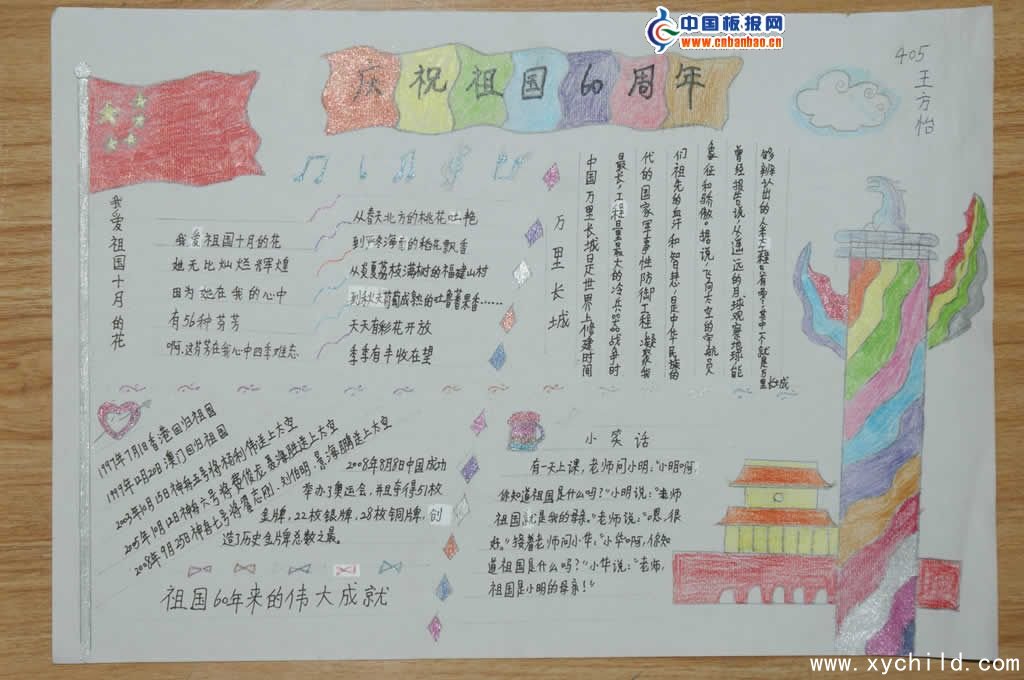 中国板报网
www.cnbanbao.cn
庆祝祖国60周年
405
王方怡
我爱祖国十月的花
我爱祖国十月的花
她无比灿烂辉煌
因为她在我的心中
有56种芬芳
啊,这芬芳在我心中四季难忘
从春天北方的桃花吐艳
到海南的稻花飘香
从炎夏荔枝满树的福建山村
到秋天葡萄成熟的吐鲁番果香……
天天有彩花开放
季季有丰收在望
万里长城
中国万里长城是世界上修建时间
最长,工程量最大的冷兵器战争时
代的国家军事性防御工程,凝聚我
们祖先的血汗和智慧,是中华民族的
象征和骄傲。据说,飞向太空的宇航员
曾经报告说,从遥远的月球观察地球,能
够辨认出的人类工程只有两,其中一个就是万里长成
1997年7月1日香港回归祖国
1999年12月20日澳门回归祖国
2003年10月15日神舟五号将杨利伟送上太空
2005年10月12日神舟六号将费俊龙,聂海胜送上太空
2008年9月25日神舟七号将翟志刚.刘伯明.景海鹏送上太空
2008年8月8日中国成功
举办了奥运会,并且夺得51枚
金牌,22枚银牌,28枚铜牌,创
造了历史金牌总数之最。
祖国60年来的伟大成就
小笑话
有一天上课,老师问小明:“小明啊,
你知道祖国是什么吗?”小明说:“老师
祖国就是我的母亲。”老师说:“恩,很
好。”接着老师问小华:“小华啊,你知
道祖国是什么吗?”小华说:“老师,
祖国是小明的母亲!”
www.xychild.com